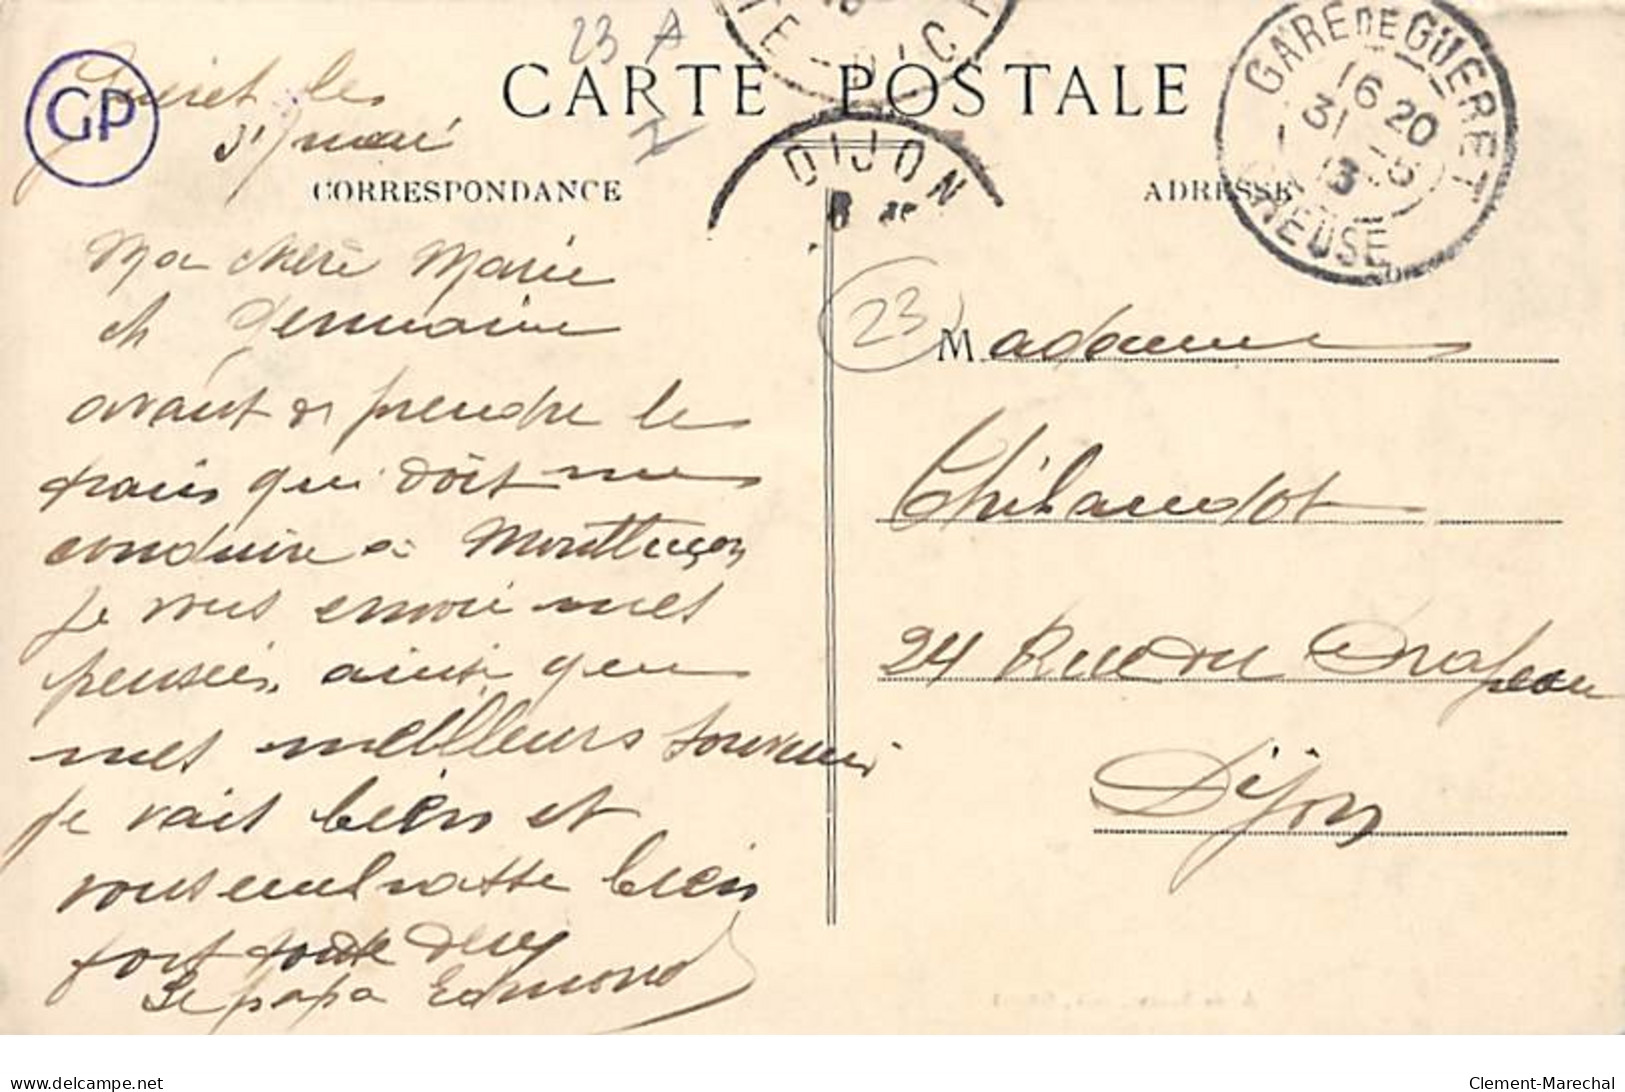 23 A
GP
CARTE POSTALE
Guéret les
31 mai
CORRESPONDANCE
ADRESSE
DIJON
GARE DE GUERET
16 20
31 - 5
13
CREUSE
23
Ma chere Marie
et Germaine
avant de prendre le
train qui doit me
conduire a Montluçon
je vous envoie mes
pensées, ainsi que
mes meilleurs souvenir
je vait bien et
vous embrasse bien
fort toute deux
Le papa Edmond
Madame
Thibaudot
24 Rue du Drapeau
Dijon
delcampe.net
Clement-Marechal